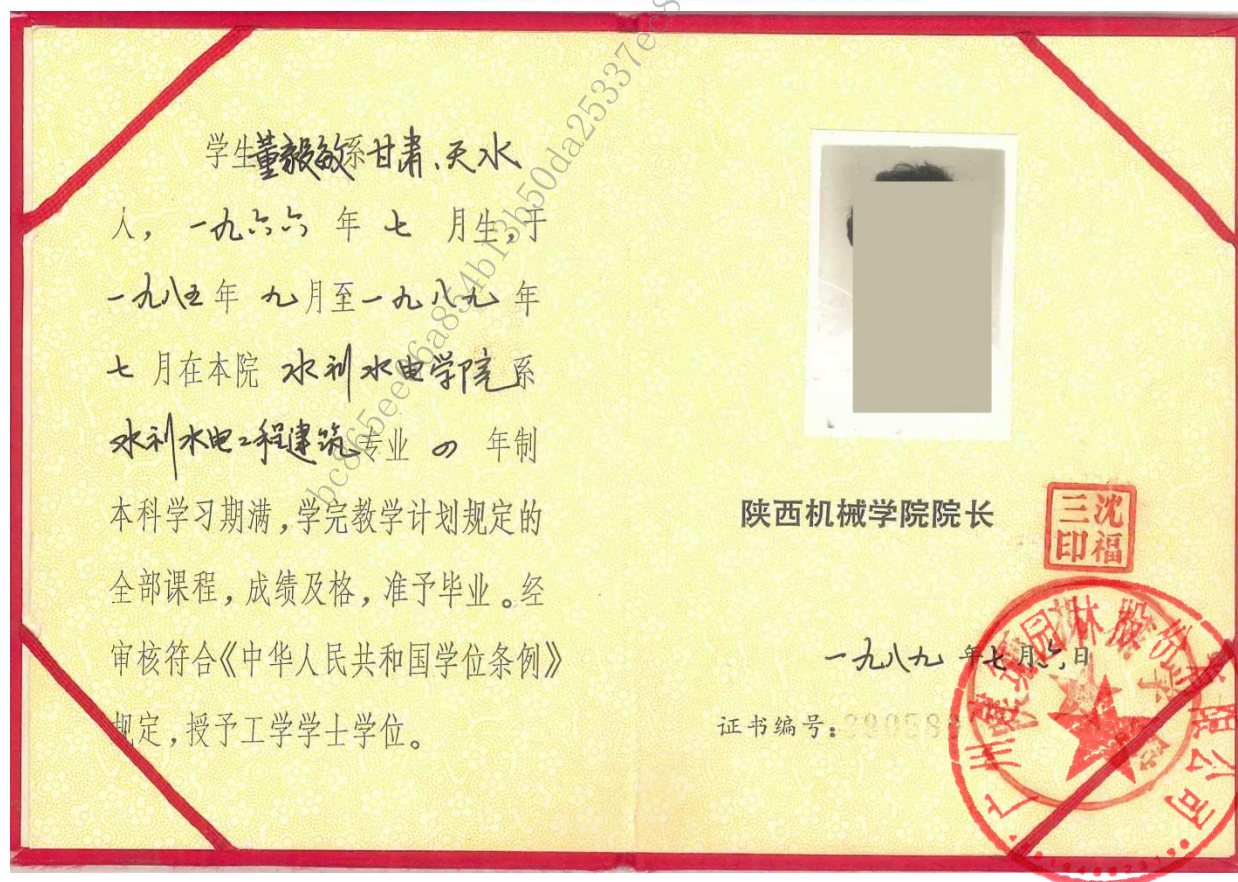 学生董毅敏系甘肃、天水
人，一九六六年七月生，于
一九八五年九月至一九八九年
七月在本院水利水电学院系
水利水电工程建筑专业四年制
本科学习期满，学完教学计划规定的
全部课程，成绩及格，准予毕业。经
审核符合《中华人民共和国学位条例》
规定，授予工学学士学位。
陕西机械学院院长
沈福三印
一九八九年七月六日
证书编号：
园林股份有限公司